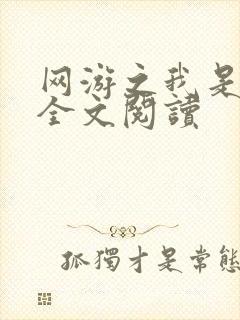 网游之我是
全文閱讀
孤獨才是常態